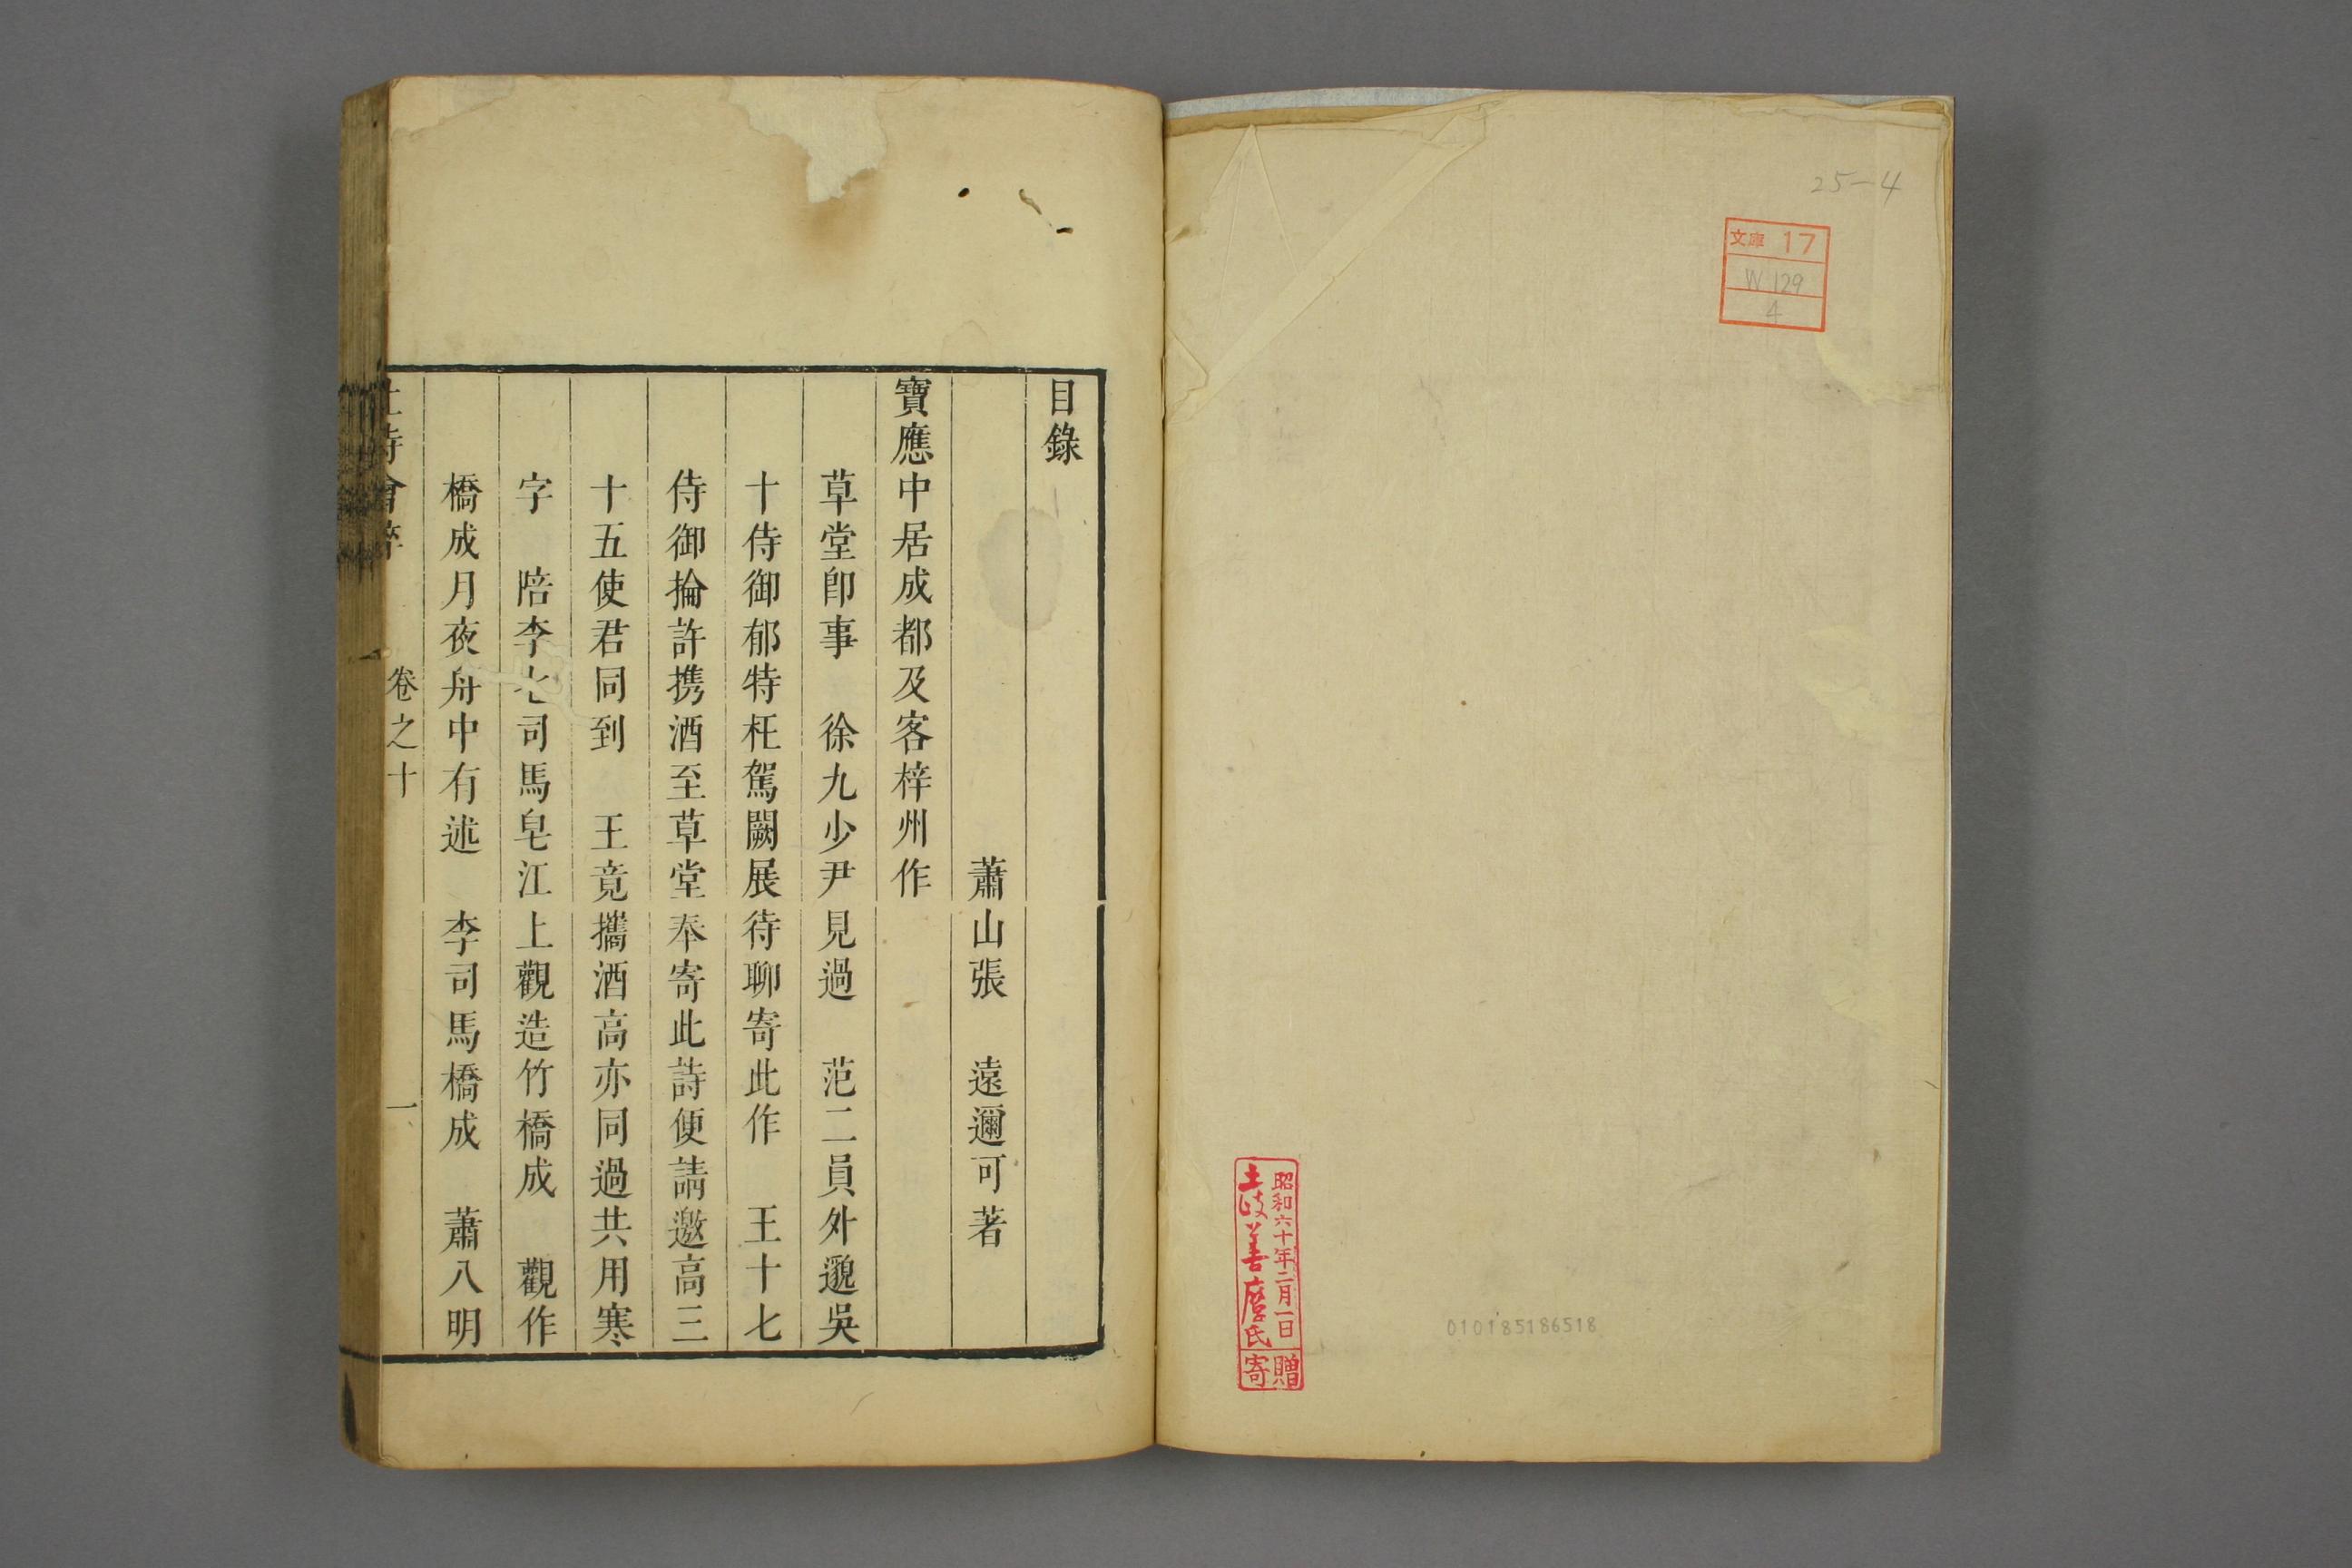 25-4
文庫 17
W 129
4
昭和六十年二月一日
土岐善麿氏
寄贈
010185186518
目錄
蕭山張　遠邇可著
寶應中居成都及客梓州作
草堂卽事　徐九少尹見過　范二員外邈吳
十侍御郁特枉駕闕展待聊寄此作　王十七
侍御掄許攜酒至草堂奉寄此詩便請邀高三
十五使君同到　王竟攜酒高亦同過共用寒
字　陪李七司馬皂江上觀造竹橋成　觀作
橋成月夜舟中有述　李司馬橋成　蕭八明
詩會稡　卷之十　一